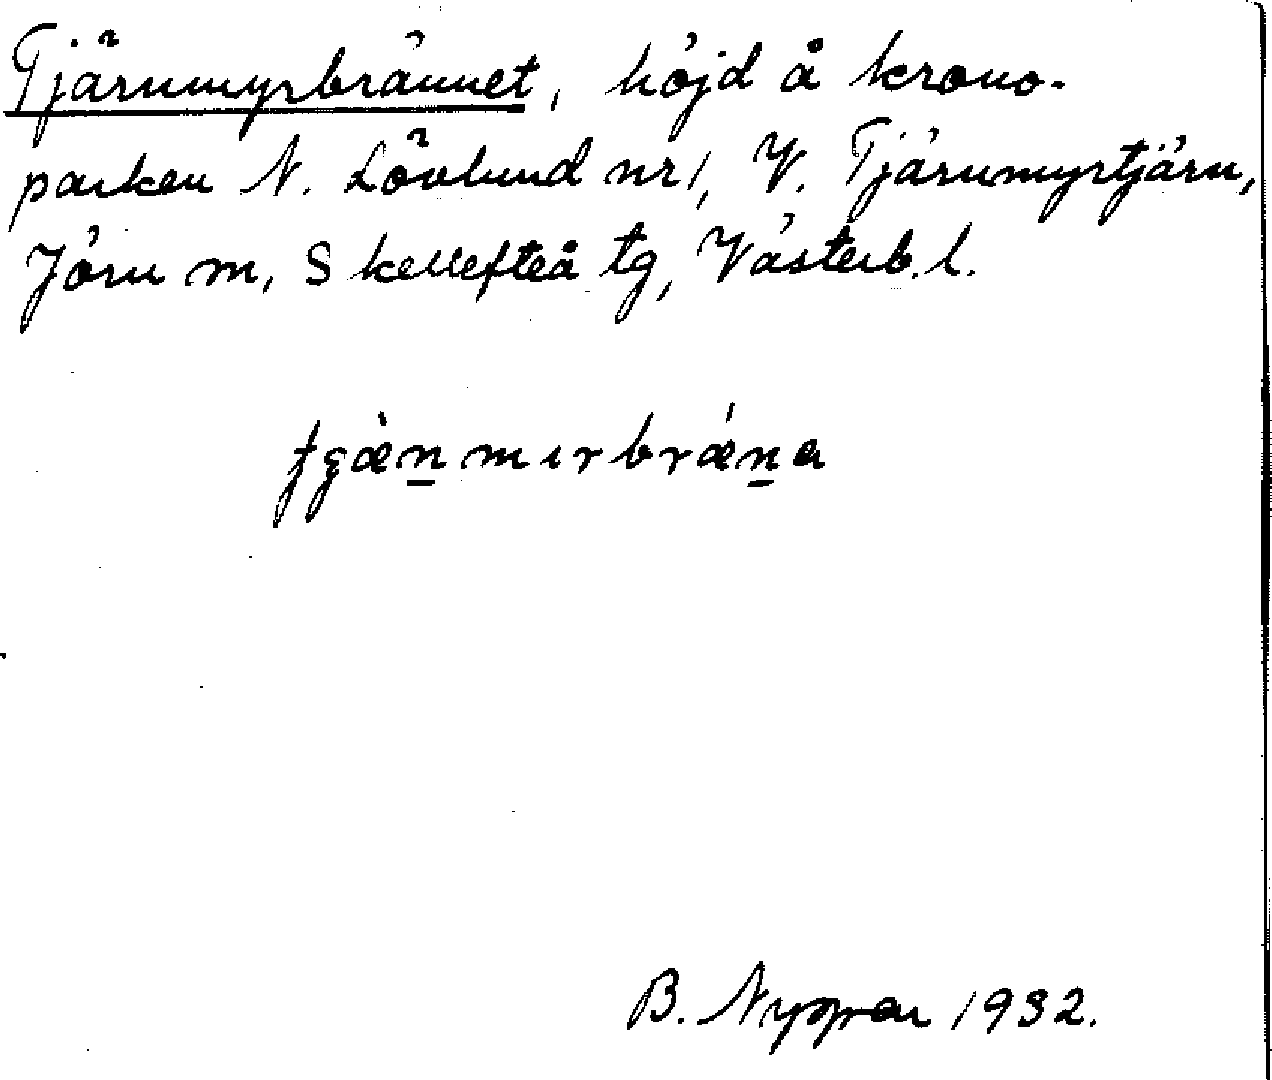 Tjärnmyrbrännet, höjd å krono-
parken N. Lövlund nr 1, V. Tjärnmyrtjärn,
Jörn m, Skellefteå tg, Västerb. l.
mırbrǽn̲a
B. 1932.